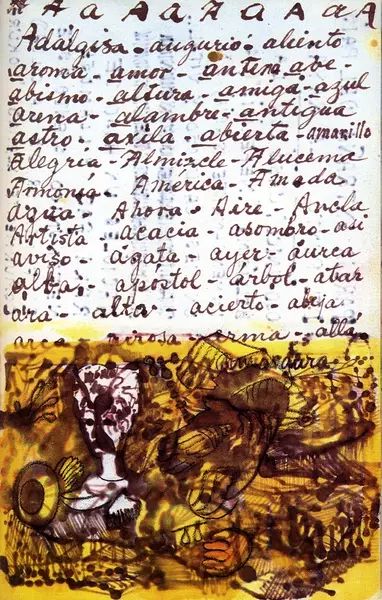 A a A a A A a A a A
Adalgisa - augurio - aliento
aroma - amor - antena ave -
abismo - altura - amiga - azul
arena - alambre - antigua
astro - axila - abierta - amarillo
Alegria - Almizcle - Alucema
Armonía - América - Amada
agua - Ahora - Aire - Ancla
Artista acacia - asombro - asi
aviso - ágata - ayer - áurea
alba - apostol - árbol - atar
ara - alta - acierto - abeja
arca - airosa - arma - allá
amargura